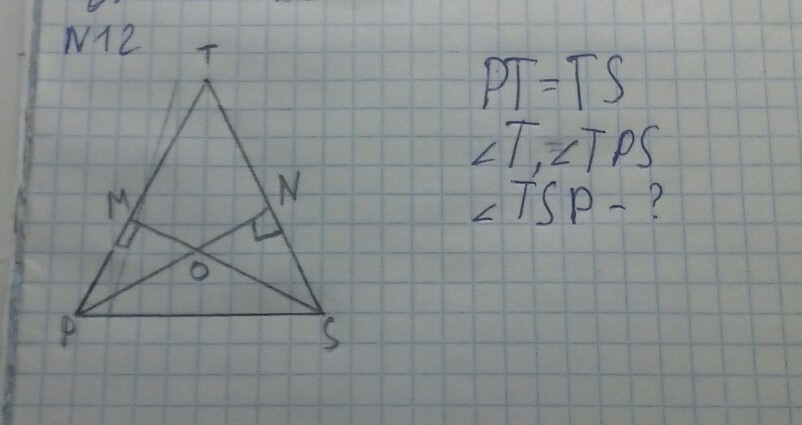 N12
T
M
N
O
P
S
PT=TS
∠T, ∠TPS
∠TSP-?